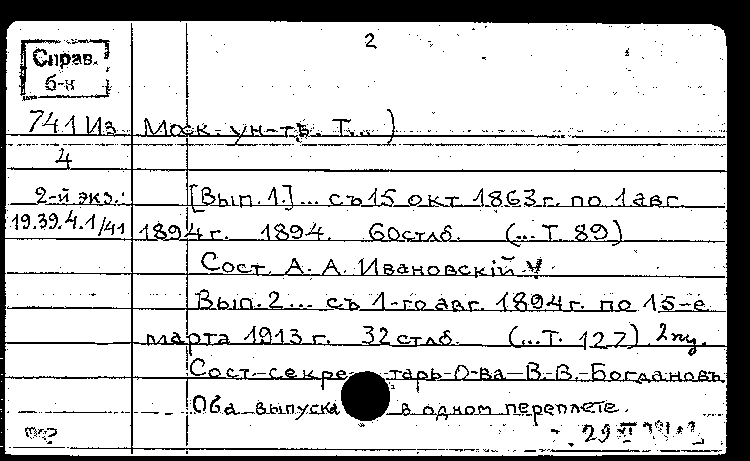 2
Справ.
б-к
741 Из Моск. ун-тѣ. Т... )
4
2-й экз.: [Вып. 1.] ... съ 15 окт 1863 г. по 1 авг
19.39.4.1/41 1894 г. 1894. 60 стлб. (... Т. 89)
Сост. А. А. Ивановскій
Вып. 2 ... съ 1-го авг. 1894 г. по 15-е
марта 1913 г. 32 стлб. (... Т. 127)
Сост. секретарь О-ва В. В. Богдановъ
Оба выпуска в одном переплете.
29 XI